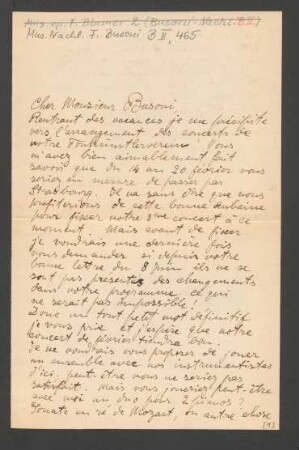 Mus. ep. F. Blumer 2 (Busoni-Nachl. B II)
Mus. Nachl. F. Busoni B II, 465
Cher Monsieur Busoni
Rentrant des vacances je me précipite
vers l'arrangement des concerts de
notre Tonkünstlerverein. Vous
m'avez bien aimablement fait
savoir que du 14 au 20 février vous
seriez en mesure de passer par
Strasbourg. Il va sans dire que nous
profiterions de cette bonne aubaine
pour fixer notre 3me concert à ce
moment. Mais avant de fixer
je voudrais une dernière fois
vous demander si depuis votre
bonne lettre du 8 juin ils ne se
sont pas présentés des changements
dans votre programme ce qui
ne serait pas impossible!
Donc un tout petit mot définitif
je vous prie et j'espère que notre
concert de février tiendra bon.
Je ne voudrais vous proposer de jouer
un ensemble avec nos instrumentistes
d'ici. peut-être vous ne seriez pas
satisfait. Mais vous joueriez peut-être
avec moi un duo pour 2 pianos?
Sonate en ré de Mozart, ou autre chose
[1]